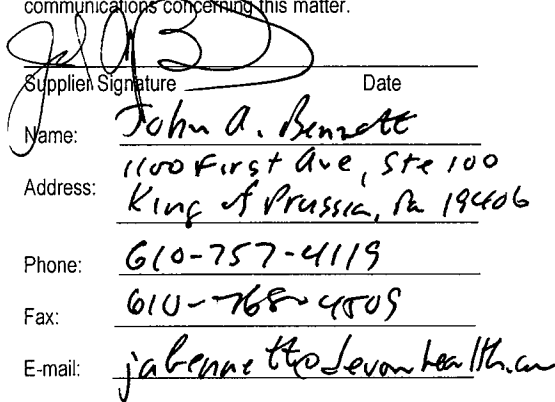 communications concerning this matter.
Supplier Signature Date
Name: John A. Bennett
Address: 1100 First Ave, Ste 100
King of Prussia, Pa 19406
Phone: 610-757-4119
Fax: 610-768-4809
E-mail: jabennett@devonhealth.com